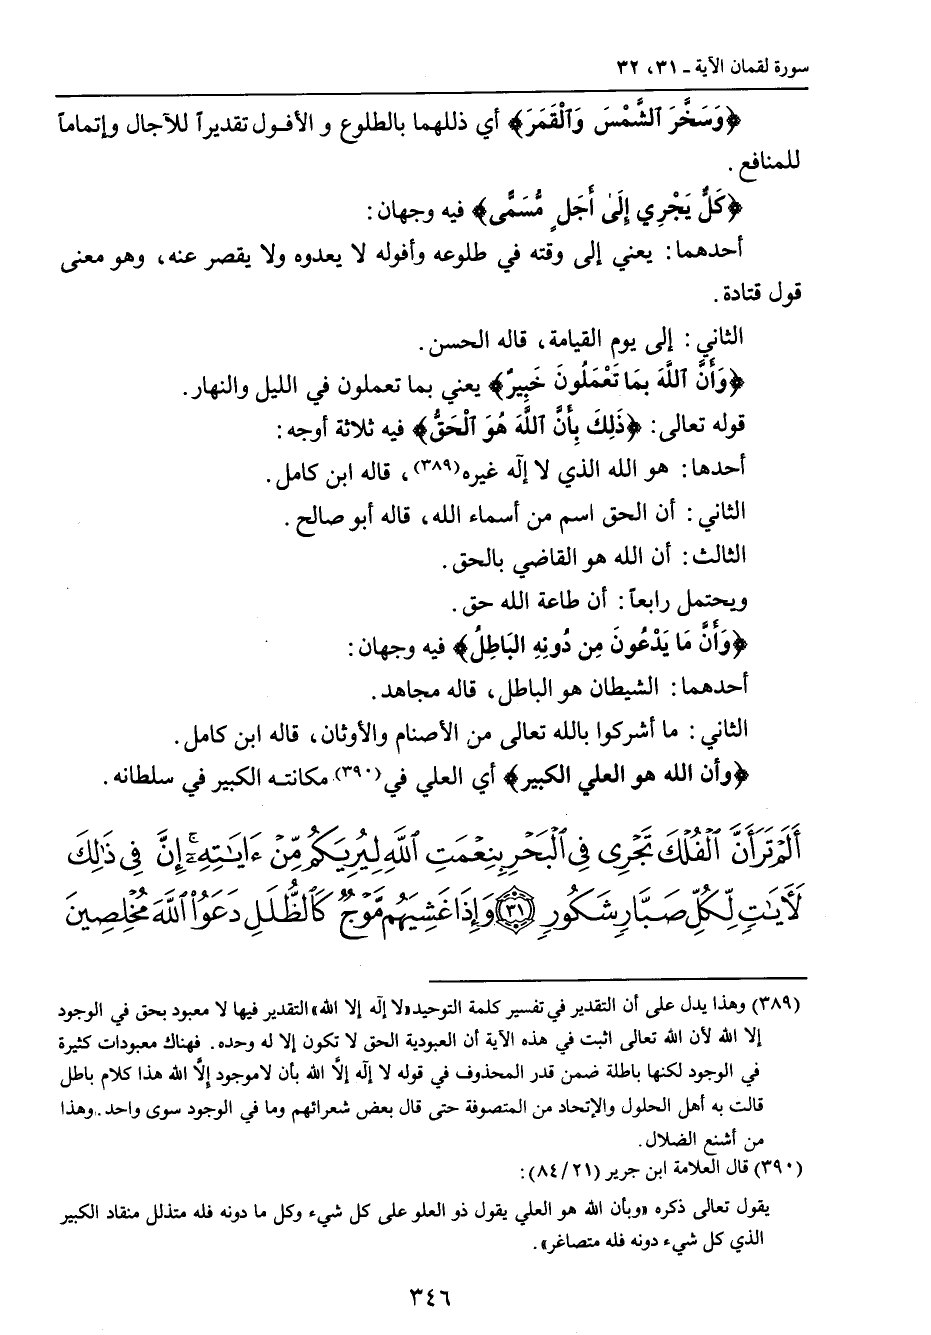 سورة لقمان الآية ـ ٣١، ٣٢
﴿وَسَخَّرَ ٱلشَّمْسَ وَٱلْقَمَرَ﴾ أي ذللهما بالطلوع و الأفـول تقديراً للآجال وإتماماً
للمنافع .
﴿كَلٌّ يَجْرِي إِلَىٰ أَجَلٍ مُّسَمًّى﴾ فيه وجهان:
أحدهما: يعني إلى وقته في طلوعه وأفوله لا يعدوه ولا يقصر عنه، وهو معنى
قول قتادة.
الثاني: إلى يوم القيامة، قاله الحسن.
﴿وَأَنَّ ٱللَّهَ بِمَا تَعْمَلُونَ خَبِيرٌ﴾ يعني بما تعملون في الليل والنهار.
قوله تعالى: ﴿ذَلِكَ بِأَنَّ ٱللَّهَ هُوَ ٱلْحَقُّ﴾ فيه ثلاثة أوجه:
أحدها: هو الله الذي لا إلٰه غيره(٣٨٩)، قاله ابن كامل.
الثاني: أن الحق اسم من أسماء الله، قاله أبو صالح.
الثالث: أن الله هو القاضي بالحق.
ويحتمل رابعاً: أن طاعة الله حق.
﴿وَأَنَّ مَا يَدْعُونَ مِن دُونِهِ البَاطِلُ﴾ فيه وجهان:
أحدهما: الشيطان هو الباطل، قاله مجاهد.
الثاني: ما أشركوا بالله تعالى من الأصنام والأوثان، قاله ابن كامل.
﴿وأن الله هو العلي الكبير﴾ أي العلي في (٣٩٠) مكانتـه الكبير في سلطانه.
أَلَمْ تَرَ أَنَّ ٱلْفُلْكَ تَجْرِى فِى ٱلْبَحْرِ بِنِعْمَتِ ٱللَّهِ لِيُرِيَكُم مِّنْ ءَايَٰتِهِۦٓ ۚ إِنَّ فِى ذَٰلِكَ
لَأَيَٰتٍ لِّكُلِّ صَبَّارٍ شَكُورٍ ﴿٣١﴾ وَإِذَا غَشِيَهُم مَّوْجٌ كَٱلظُّلَلِ دَعَوُا۟ ٱللَّهَ مُخْلِصِينَ
(٣٨٩) وهذا يدل على أن التقدير في تفسير كلمة التوحيد «لا إلٰه إلا الله» التقدير فيها لا معبود بحق في الوجود
إلا الله لأن الله تعالى اثبت في هذه الآية أن العبودية الحق لا تكون إلا له وحده. فهناك معبودات كثيرة
في الوجود لكنها باطلة ضمن قدر المحذوف في قوله لا إلٰه إلَّا الله بأن لاموجود إلَّا الله هذا كلام باطل
قالت به أهل الحلول والإتحاد من المتصوفة حتى قال بعض شعرائهم وما في الوجود سوى واحد..وهذا
من أشنع الضلال.
(٣٩٠) قال العلامة ابن جرير (٨٤/٢١):
يقول تعالى ذكره «وبأن الله هو العلي يقول ذو العلو على كل شيء وكل ما دونه فله متذلل منقاد الكبير
الذي كل شيء دونه فله متصاغر».
٣٤٦